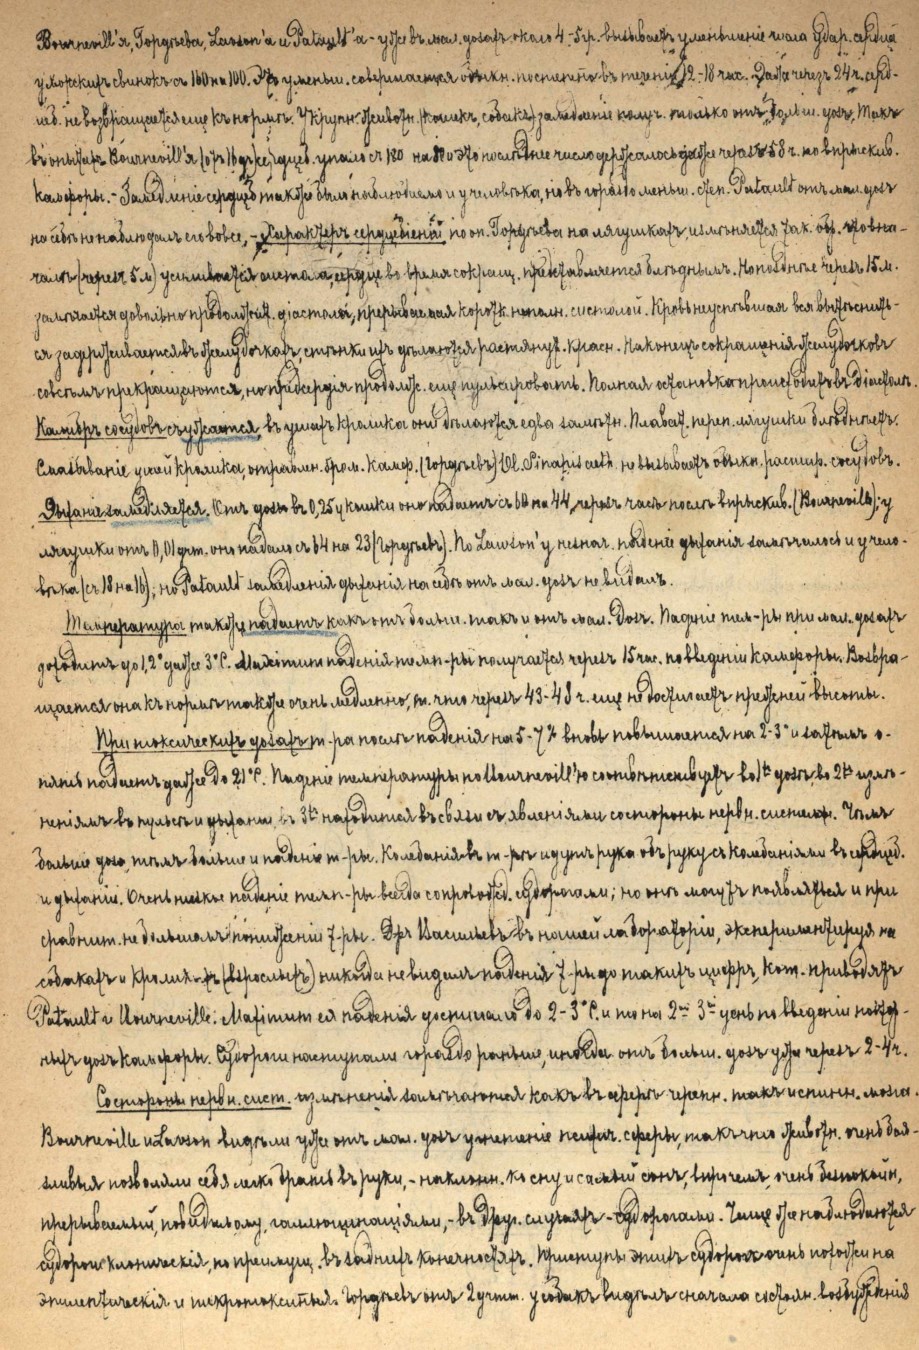 Bourneville'я, Гордѣева, Lawson'а и Patault'а – уже въ мал. дозахъ около 4–5 гр. вызываетъ уменьшеніе числа удар. сердца
у морскихъ свинокъ съ 160 на 100. Это уменьш. совершается обыкн. постепенно въ теченіи 12–18 час. Даже черезъ 24 ч. серд-
цеб. не возвращается еще къ нормѣ. У крупн. животн. (кошекъ, собакъ) замедленіе получ. только отъ больш. дозъ. Такъ
въ опытахъ Bourneville'я упало съ 180 на и это послѣднее число держалось даже черезъ ч. по впрыскив.
камфоры. – Замедленіе сердцеб. также было наблюдаемо и у человѣка, но въ гораздо меньш. степ. Patault отъ мал. дозъ
на себѣ не наблюдалъ его вовсе, – Характеръ сердцебіеній по оп. Гордѣева на лягушкахъ, измѣняется так. обр. что вна-
чалѣ (черезъ 5 м) усиливается систола, сердце во время сокращ. представляется блѣднымъ. Но позднѣе черезъ 15 м.
замѣчается довольно продолжит. діастола, прерываемая коротк. неполн. систолой. Кровь неуспѣвшая вся вытѣснить-
ся задерживается въ желудочкахъ, стѣнки ихъ дѣлаются растянут. красн. Наконецъ сокращенія желудочковъ
совсѣмъ прекращаются, но предсердія продолж. еще пульсировать. Полная остановка происходитъ въ діастолѣ.
Калибръ сосудовъ съуживается, въ ушахъ кролика они дѣлаются едва замѣтн. Плават. переп. лягушки блѣднѣетъ.
Смазываніе ушей кролика, отравлен. бром. камф. (Гордѣевъ) Ol. Sinapis aeth. не вызываетъ обыкн. расшир. сосудовъ.
Дыханіе замедляется. Отъ дозы въ 0,25 у кошки оно падаетъ съ 60 на 44, черезъ часъ послѣ впрыскив. (Bourneville); у
лягушки отъ 0,01 грм. оно падало съ 64 на 23 (Гордѣевъ). По Lawson'у незнач. паденіе дыханія замѣчалось и у чело-
вѣка (съ 18 на 16); но Patault замедленія дыханія на себѣ отъ мал. дозъ не видалъ.
Температура также падаетъ какъ отъ больш. такъ и отъ мал. дозъ. Паденіе тем-ры при мал. дозахъ
доходитъ до 1,2° даже 3° С. Maximum паденія темп-ры получается черезъ 15 час. по введеніи камфоры. Возвра-
щается она къ нормѣ также очень медленно, т. что черезъ 43–48 ч. еще не достигаетъ прежней высоты.
При токсическихъ дозахъ т-ра послѣ паденія на 5–7° вновь повышается на 2–3° и затѣмъ о-
пять падаетъ даже до 21° С. Паденіе температуры по Bourneville'ю соотвѣтствуетъ во 1хъ дозѣ во 2хъ измѣ-
неніямъ въ пульсѣ и дыханіи, въ 3хъ находится въ связи съ явленіями со стороны нервн. системы. Чѣмъ
больше доза, тѣмъ больше и паденіе т-ры. Колебанія въ т-рѣ идутъ рука объ руку съ колебаніями въ сердцеб.
и дыханіи. Очень низкое паденіе темп-ры всегда сопровожд. судорогами; но онѣ могутъ появляться и при
сравнит. не большомъ пониженіи т-ры. Д-ръ Васильевъ въ нашей лабораторіи, экспериментируя на
собакахъ и кроликахъ (взрослыхъ) никогда не видалъ паденія т-ры до такихъ цифръ, кот. приводятъ
Patault и Bourneville: Maximum ея паденія достигало до 2–3° С. и то на 2ой 3ій день по введеніи
дозъ камфоры. Судороги наступали гораздо раньше, иногда отъ больш. дозъ уже черезъ 2–4 ч.
Со стороны нервн. сист. измѣненія замѣчаются какъ въ сферѣ черепн. такъ и спинн. мозга.
Bourneville и Lawson видѣли уже отъ мал. дозъ угнетеніе психич. сферы, такъ что животн. очень боя-
зливыя позволяли себя легко брать въ руки, – наклонн. ко сну и самый сонъ, впрочемъ, очень безпокойн,
прерываемый, повидимому, галлюцинаціями, – въ друг. случаяхъ – судорогами. Чаще же наблюдаются
судороги клоническія, по преимущ. въ заднихъ конечностяхъ. Приступы этихъ судорогъ очень похожи на
эпилептическія и пикротоксинныя. Гордѣевъ отъ 2 грмм. у собакъ видѣлъ сначала состоян. возбужденія